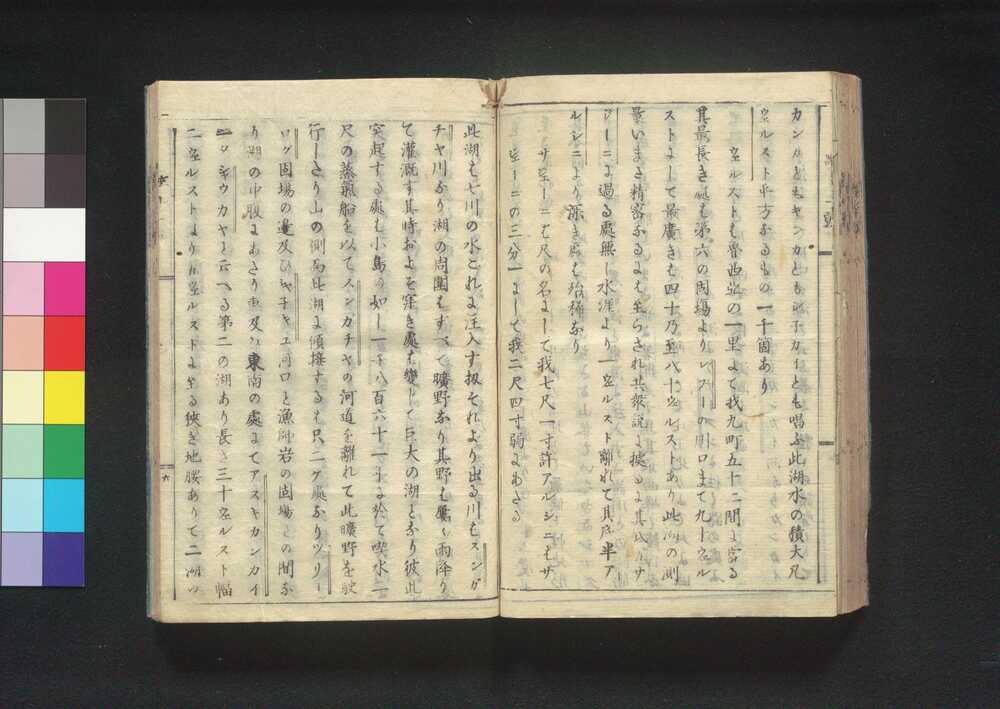 カンカともキヤンカとも
カイとも唱ふ此湖水の積大凡
空ルスト平方なるもの一千箇あり
空ルストは魯西亜の一里にて我九町五十二間に当る
其最長き処は第六の固場より
の川口まて九十空ル
ストにして最廣きは四十乃至八十空ルストあり此湖の測
量いまた精密なるには至らされ共衆説に據るに其底サ
ジーニに過る處無し水涯より一空ルスト離れて其底半ア
ルシニより深き處は殆稀なり
サ空ーニは尺の名にして我七尺一寸許アルシニはサ
空ーニの三分一にして我二尺四寸弱にあたる
此湖は七川の水これに注入す扨それより出る川はスンガ
チヤ川なり湖の周圍はすへて曠野なり其野は屢雨降り
て灌漑す其時およそ窪き處は變して巨大の湖となり彼此
突起する處は小島の如し一千八百六十一年に於て喫水二
尺の蒸氣船を以てスンガチヤの河道を離れて此曠野を駛
行したり山の側面此湖に傾接するは只二ケ處なりツリー
ログ固場の邊及ひ
河口と漁師岩の固場との間な
り湖の中腹にあたり
東南の處にてアスキカンカイ
と云へる第二の湖あり長さ三十空ルスト幅
二空ルストより
空ルストに至る狭き地腰ありて二湖の
六